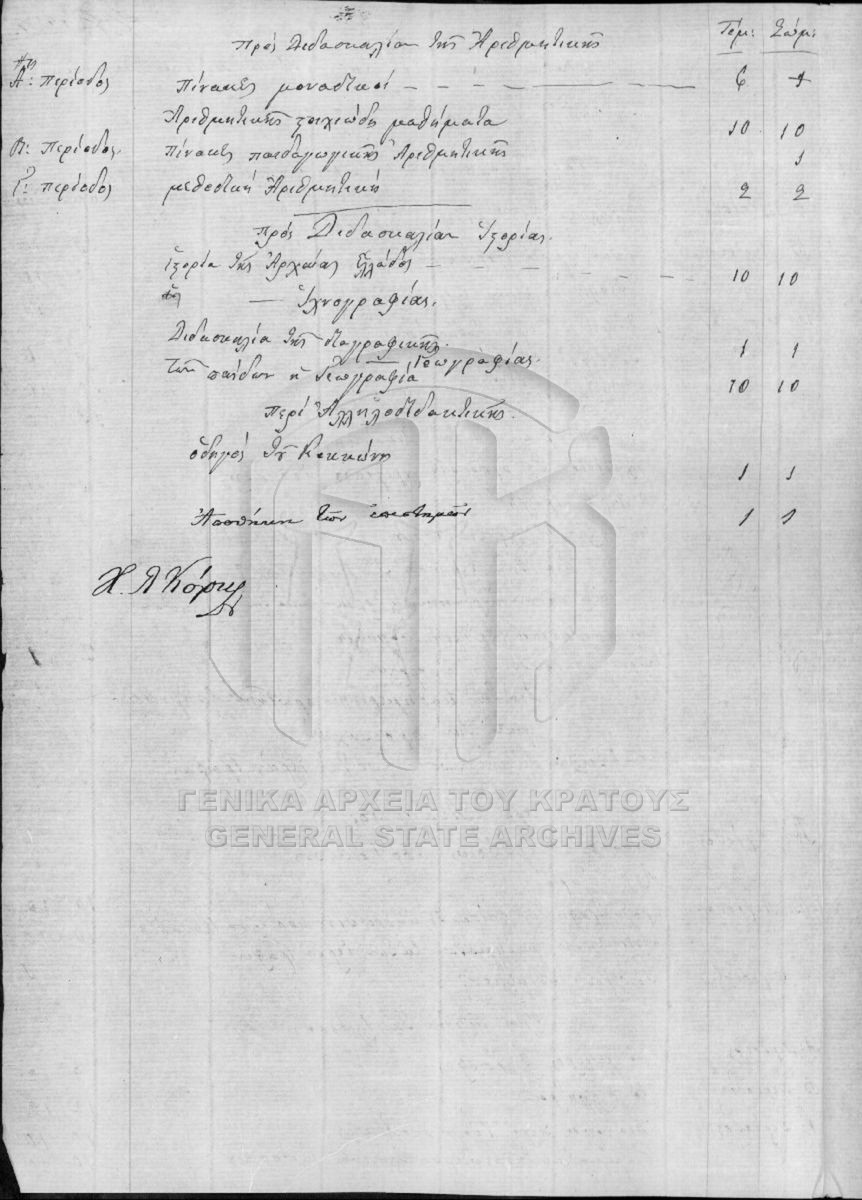 Πρὸς Διδασκαλίαν τῆς Ἀριθμητικῆς Τόμ: Σώμ:
Α: περίοδος πίνακες μοναδικοὶ 6 1
Ἀριθμητικῆς στοιχειώδη μαθήματα 10 10
Β: περίοδος πίνακες παιδαγωγικῆς Ἀριθμητικῆς 1
Γ: περίοδος μεθοδικὴ Ἀριθμητική 2 2
πρὸς Διδασκαλίαν Ἱστορίας.
Ἱστορία τῆς Ἀρχαίας Ἑλλάδος 10 10
Ἰχνογραφίας.
Διδασκαλία τῆς διαγραφικῆς. 1 1
Γεωγραφίας.
τῶν παίδων ἡ Γεωγραφία 10 10
περὶ Ἀλληλοδιδακτικῆς.
ὁδηγὸς τοῦ Κοκκώνη 1 1
Ἀποθήκη τῶν 1 1
ΓΕΝΙΚΑ ΑΡΧΕΙΑ ΤΟΥ ΚΡΑΤΟΥΣ
GENERAL STATE ARCHIVES